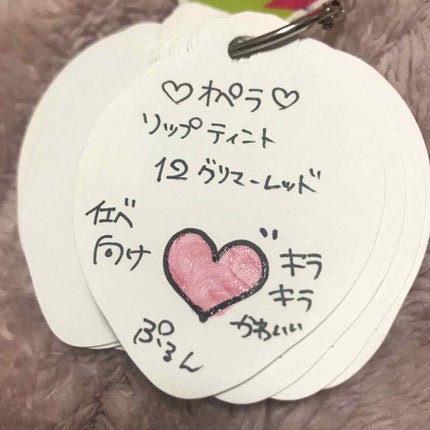 ♡オペラ♡
リップティント
12 グリマーレッド
イエベ
向け
キラ
キラ
かわいい
ぷるん